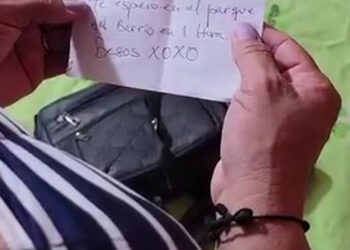 te espero en el parque
del Barrio en 1 Hora.
Besos XOXO